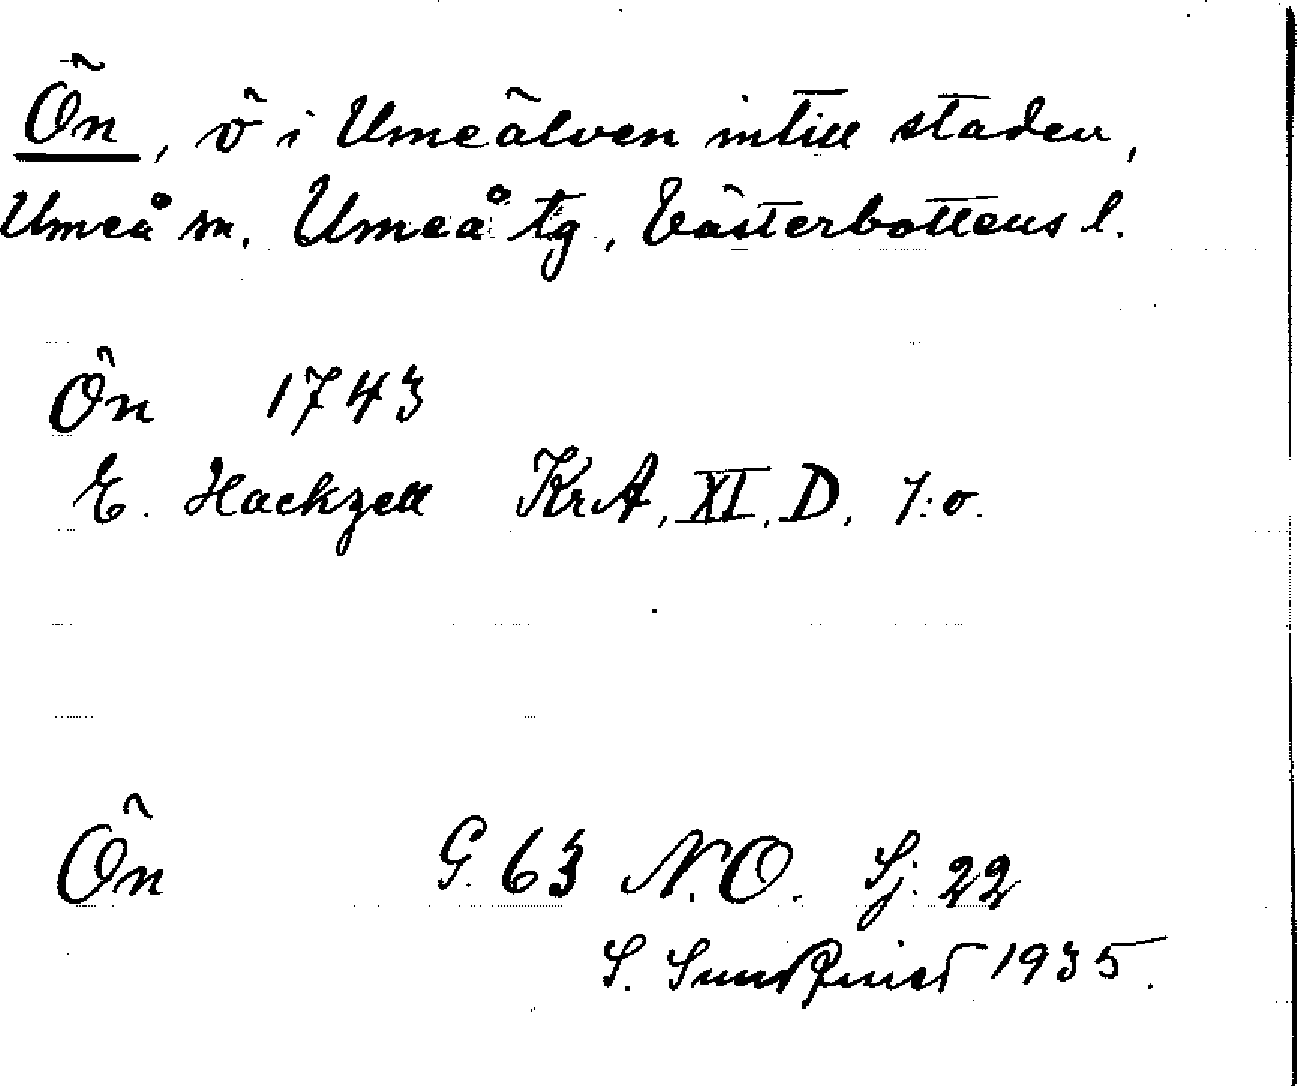 Ön, ö i Umeälven intill staden,
Umeå sn. Umeå tg, Västerbottens l.
Ön 1743
E. Hackzell KrA, XI, D, 7:o.
Ön G. 63 N.O. Sj: 22
S. Sundquist 1935.